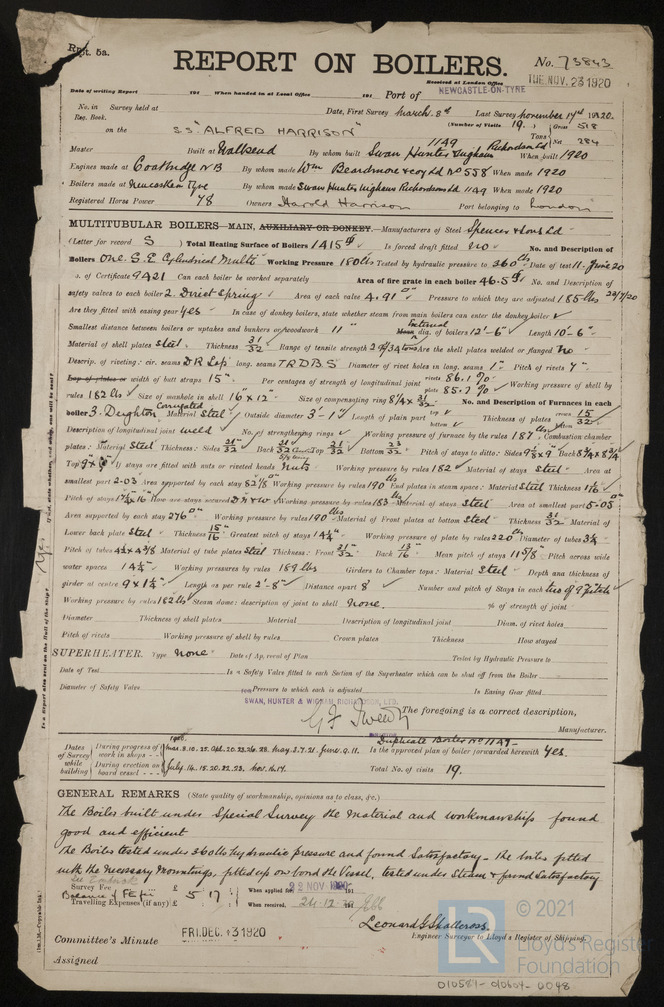 Rpt. 5a.
REPORT ON BOILERS.
No. 73843
Received at London Office TUE. NOV. 23 1920
Date of writing Report 191 When handed in at Local Office 191 Port of NEWCASTLE-ON-TYNE
No. in Survey held at Date, First Survey March 8th Last Survey November 17th 1920.
Reg. Book. (Number of Visits 19.) Gross 518
on the S.S "ALFRED HARRISON" Tons Net 284
Master Built at Wallsend By whom built Swan Hunter & Wigham Richardson Ld 1149 When built 1920
Engines made at Coatbridge N.B By whom made Wm Beardmore & Coy Ld No 558 When made 1920
Boilers made at Newcastle on Tyne By whom made Swan Hunter Wigham Richardson Ld 1149 When made 1920
Registered Horse Power 78 Owners Harold Harrison Port belonging to London
MULTITUBULAR BOILERS—MAIN, AUXILIARY OR DONKEY.—Manufacturers of Steel Spencer & Sons Ld
(Letter for record S) Total Heating Surface of Boilers 1415 Is forced draft fitted No No. and Description of
Boilers One S.E Cylindrical Multi Working Pressure 180 lbs Tested by hydraulic pressure to 360 lbs Date of test 11. June 20
No. of Certificate 9421 Can each boiler be worked separately Area of fire grate in each boiler 46.5 No. and Description of
safety valves to each boiler 2. Direct Spring Area of each valve 4.91" Pressure to which they are adjusted 185 lbs 22/7/20
Are they fitted with easing gear yes In case of donkey boilers, state whether steam from main boilers can enter the donkey boiler
Smallest distance between boilers or uptakes and bunkers or woodwork 11" Mean External dia. of boilers 12'-6" Length 10'-6"
Material of shell plates Steel Thickness 31/32 Range of tensile strength 29/34 tons Are the shell plates welded or flanged No
Descrip. of riveting: cir. seams D R Lap long. seams T R D B S Diameter of rivet holes in long. seams 1" Pitch of rivets 7"
Lap of plates or width of butt straps 15" Per centages of strength of longitudinal joint rivets 86.1 % plate 85.7 % Working pressure of shell by
rules 182 lbs Size of manhole in shell 16" x 12" Size of compensating ring 8 1/4 x 31/32 No. and Description of Furnaces in each
boiler 3. Deighton Corrugated Material Steel Outside diameter 3'-1" Length of plain part top bottom Thickness of plates crown bottom 15/32
Description of longitudinal joint weld No. of strengthening rings Working pressure of furnace by the rules 187 Combustion chamber
plates: Material Steel Thickness: Sides 21/32 Back 21/32 Top 21/32 Bottom 23/32 Pitch of stays to ditto: Sides 9 1/8 x 9" Back 8 3/4 x 8 3/4
Top 9" x 8" If stays are fitted with nuts or riveted heads Nuts Working pressure by rules 182 Material of stays Steel Area at
smallest part 2.03 Area supported by each stay 82 1/8 Working pressure by rules 190 End plates in steam space: Material Steel Thickness 1 1/16
Pitch of stays 17 1/4 x 16" How are stays secured D N & W Working pressure by rules 183 lbs Material of stays Steel Area at smallest part 5.05
Area supported by each stay 276 Working pressure by rules 190 lbs Material of Front plates at bottom Steel Thickness 31/32 Material of
Lower back plate Steel Thickness 15/16" Greatest pitch of stays 14 1/4" Working pressure of plate by rules 220 Diameter of tubes 3 1/4
Pitch of tubes 4 1/2 x 4 3/8 Material of tube plates Steel Thickness: Front 31/32 Back 13/16 Mean pitch of stays 11 5/8" Pitch across wide
water spaces 14 1/2" Working pressures by rules 189 lbs Girders to Chamber tops: Material Steel Depth and thickness of
girder at centre 9 x 1 1/4" Length as per rule 2'-8" Distance apart 8 Number and pitch of Stays in each two @ 9" pitch
Working pressure by rules 182 lbs Steam dome: description of joint to shell None. % of strength of joint
Diameter Thickness of shell plates Material Description of longitudinal joint Diam. of rivet holes
Pitch of rivets Working pressure of shell by rules Crown plates Thickness How stayed
SUPERHEATER. Type None Date of Approval of Plan Tested by Hydraulic Pressure to
Date of Test Is a Safety Valve fitted to each Section of the Superheater which can be shut off from the Boiler
Diameter of Safety Valve Pressure to which each is adjusted Is Easing Gear fitted
FOR SWAN, HUNTER & WIGHAM RICHARDSON, LTD.
G F Tweedy The foregoing is a correct description,
Manufacturer.
Duplicate Boiler No 1147
Dates of Survey while building During progress of work in shops - - 1920. Mar. 8. 10. 25. Apl. 20. 23. 26. 28. May. 3. 7. 21. June. 9. 11. Is the approved plan of boiler forwarded herewith Yes.
During erection on board vessel - - - July. 14. 15. 20. 22. 23. Nov. 16. 17. Total No. of visits 19.
GENERAL REMARKS (State quality of workmanship, opinions as to class, &c.)
The Boiler built under Special Survey the Material and workmanship found
good and efficient
The Boiler tested under 360 lbs hydraulic pressure and found Satisfactory - the boiler fitted
with the necessary Mountings, fitted up on board the Vessel, tested under Steam & found Satisfactory
Survey Fee £ 5 : 17 : When applied for, 22 NOV 1920
Travelling Expenses (if any) £ : : When received, 24.12.20
Leonard G Shallcross.
Engineer Surveyor to Lloyd's Register of Shipping.
Committee's Minute FRI. DEC. 31 1920
Assigned
Is a Report also sent on the Hull of the Ship? Yes
© 2021
LR
Lloyd's Register
Foundation
010584-010604-0048